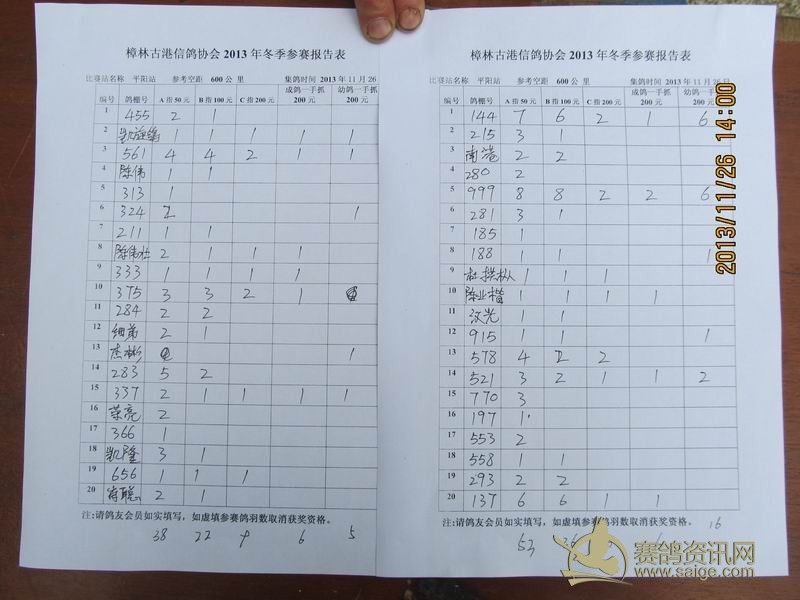 樟林古港信鸽协会 2013 年冬季参赛报告表
比赛站名称 平阳站 参考空距 600 公 里 集鸽时间 2013 年 11 月 26
编号 鸽棚号 A 指 50 元 B 指 100 元 C 指 200 元 成鸽一手抓 200 元 幼鸽一手抓 200 元
1 455 2 1
2 1 1 1 1 1
3 561 4 4 2 1 1
4 陈伟 1 1
5 313 1
6 324 1
7 211 1 1
8 陈伟 2 1 1 1
9 333 1 1 1 1
10 375 3 3 2 1
11 284 2 2
12 细弟 2 1
13 杰彬 1
14 283 5 2
15 337 2 1 1 1 1
16 荣亮 2
17 366 1
18 凯隆 3 1
19 656 1 1 1
20 2 1
注:请鸽友会员如实填写，如虚填参赛鸽羽数取消获奖资格。
38 22 9 6 5
樟林古港信鸽协会 2013 年冬季参赛报告表
比赛站名称 平阳站 参考空距 600 公 里 集鸽时间 2013 年 11 月 26 日
编号 鸽棚号 A 指 50 元 B 指 100 元 C 指 200 元 成鸽一手抓 200 元 幼鸽一手抓 200 元
1 144 7 6 2 1 6
2 215 3 1
3 南港 2 2
4 280 2
5 999 8 8 2 2 6
6 281 3 1
7 185 1
8 188 1 1 1
9 杜 1 1 1
10 陈业楷 1 1 1 1
11 汉光 1 1
12 915 1 1 1
13 578 4 2 2
14 521 3 2 1 1 2
15 770 3
16 197 1
17 553 2
18 558 1 1
19 293 2 2
20 137 6 6 1 1
注:请鸽友会员如实填写，如虚填参赛鸽羽数取消获奖资格。
53 16
2013/11/26 14:00
赛鸽资讯网
www.saige.com